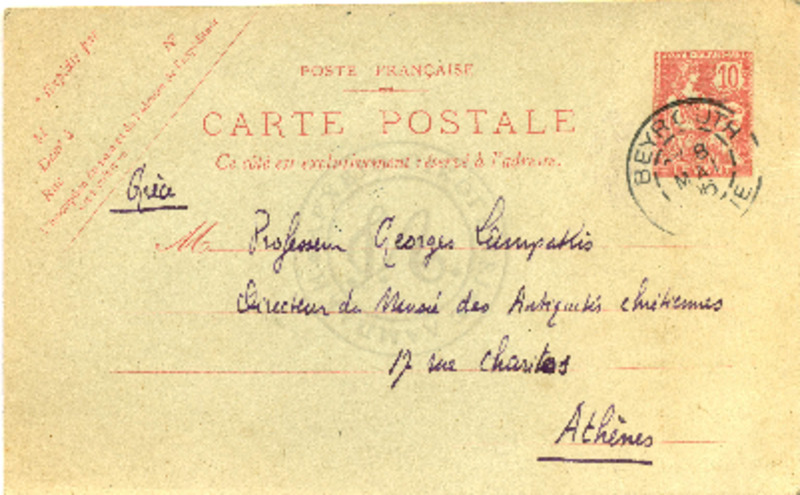 POSTE FRANÇAISE
CARTE POSTALE
Ce côté est exclusivement réservé à l'adresse.
10
BEYROUTH
8
MAI
SYRIE
Expédié par
M
N°
Rue
Grèce
M Professeur Georges Lampakis
Directeur du Musée des Antiquités chrétiennes
17 rue Charitos
Athènes